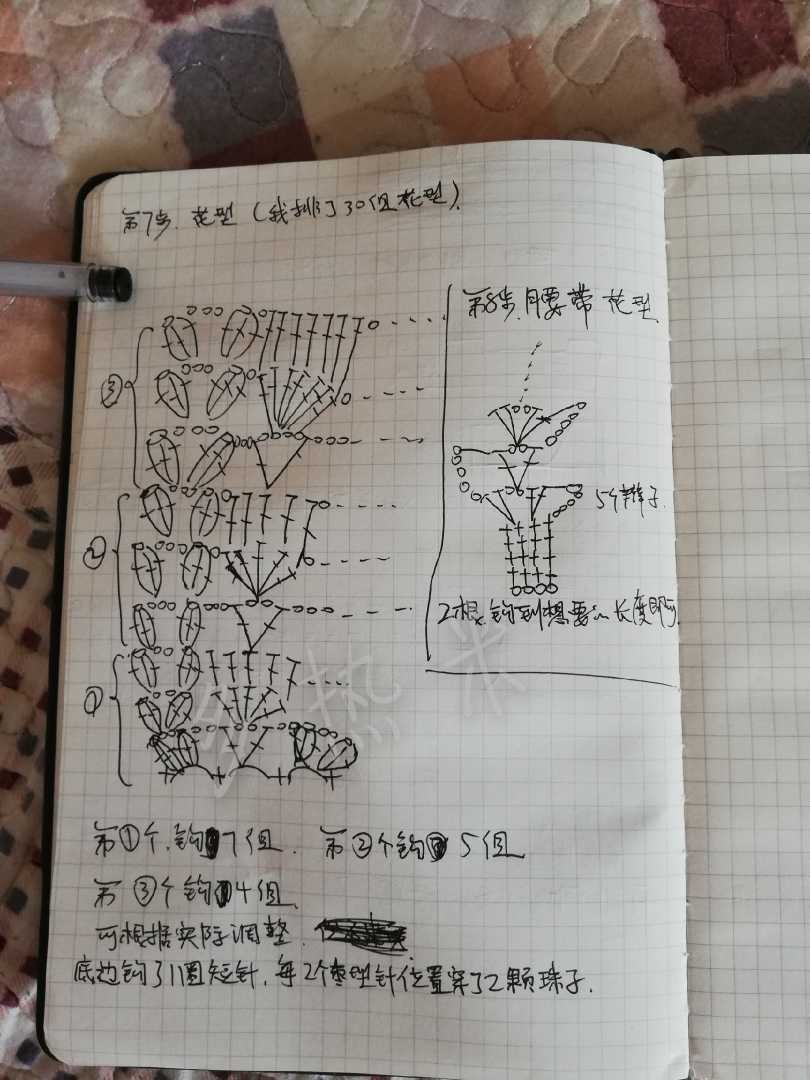 第7步. 花型 (我排了30组花型).
第8步, 腰带 花型
③
②
5个辫子.
2根, 钩到想要的长度即可.
①
第①个, 钩7组. 第②个钩5组
第③个钩4组
可根据实际调整.
底边钩了1圈短针, 每2个枣型针位置穿了2颗珠子.